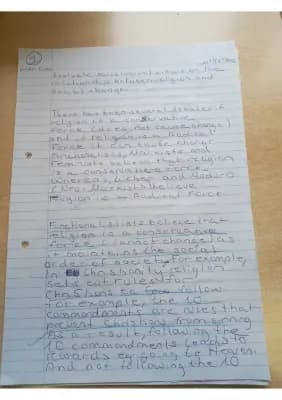 evaluate sociological views on the
relationship between religion and
social change.
There has been several debates if
religion is a conservative
force (does not cause change)
and if religion is a radical
force it can cause change
Functionalists, Marxists and
Feminists believe that religion
is a conservative force.
Whereas, Weber and
(Neo) Marxists believe
religion is a Radical Force
Functionalists believe that
religion is a conservative
force (cannot change) as
it maintains the social
order of society. For example,
In Christianity religion
sets out rules for
Christians to follow
For example, the 10
commandments are rules that
prevent Christians from sinning
As a result, following the
10 commandments leads to
rewards eg going to Heaven.
And not following the 10